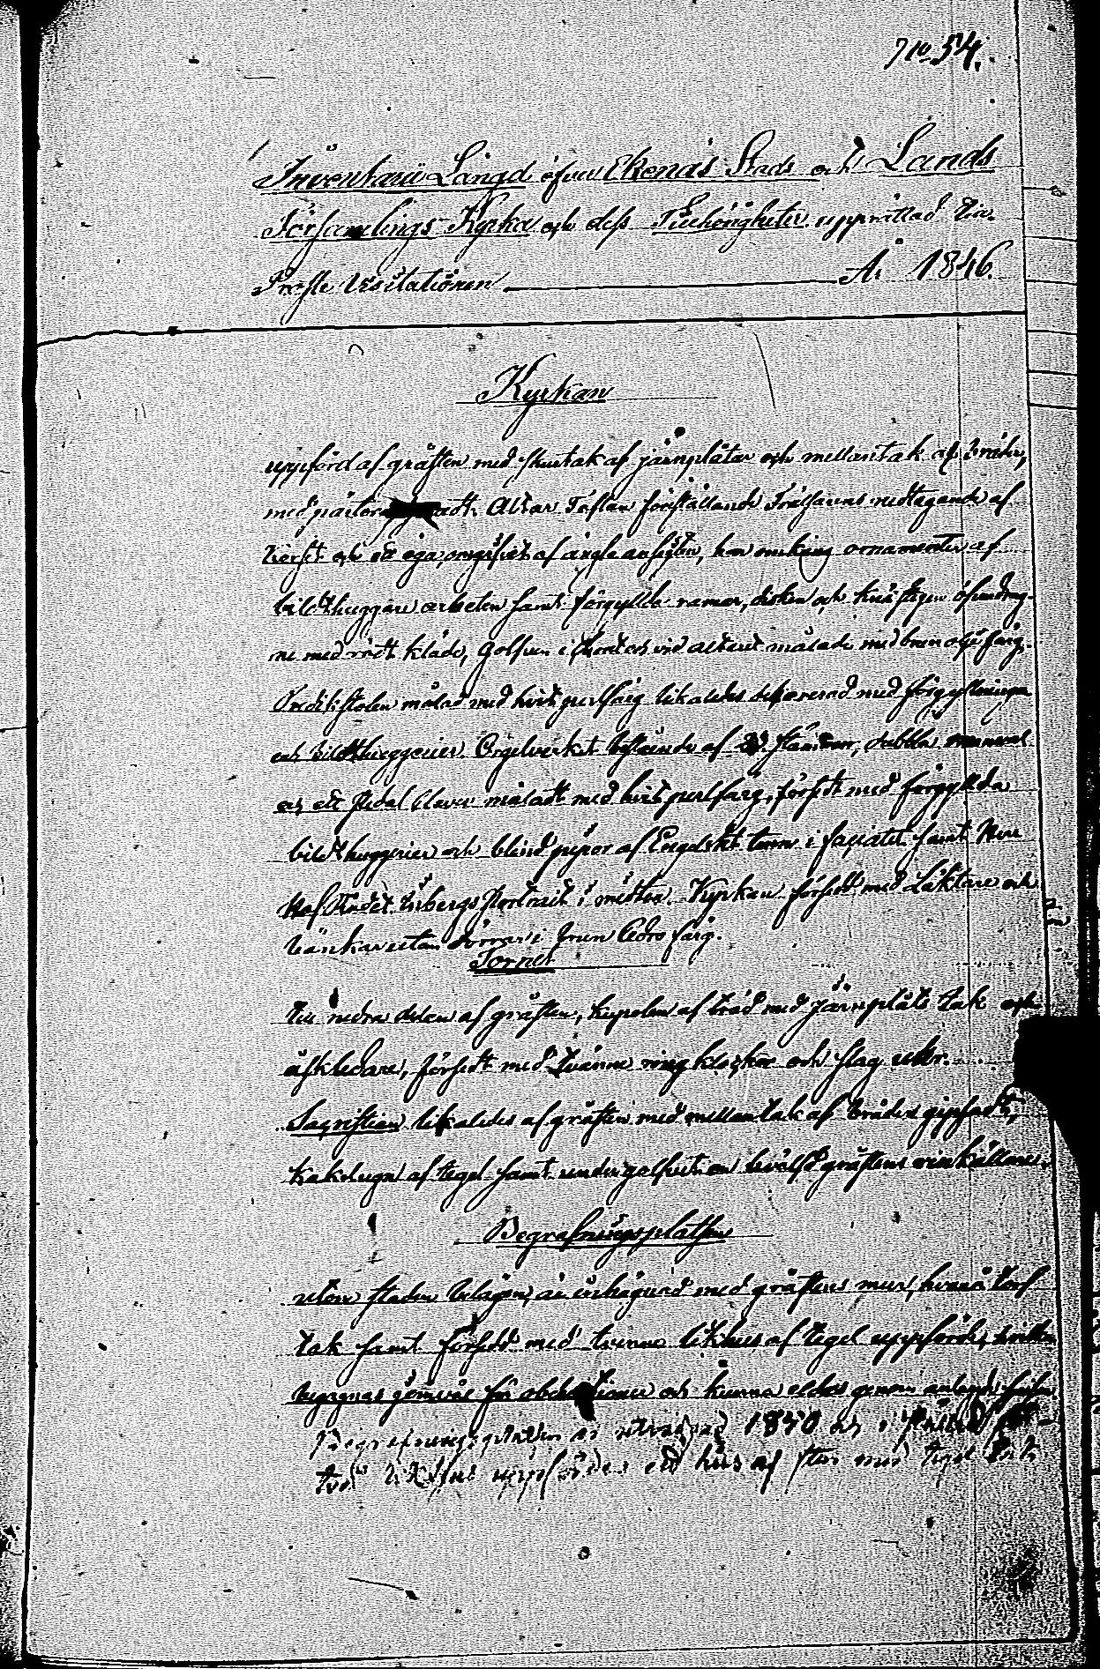 No 54.
Inventarii Längd öfver Ekenäs Stads och Lands
Församlings Kyrka och dess Tillhörigheter upprättad vid
Probste Visitationen År 1846.
Kyrkan
uppförd af gråsten med skurtak af järnplåtar och mellantak af bräder,
med Altar Taflan föreställande Frälsarens nedtagande af
korset och ett öga, omgifvit af änglaansigten, har omkring ornamenter af
bildthuggare arbeten samt förgyllda ramar, disken och knäfallen öfverdrag-
ne med rödt kläde, Golfven i Choret och vid altaret målade med brun oljefärg.
Predikstolen målad med hvit perlfärg likaledes dekorerad med förgyllningar
och bildthuggerier Orgelverket bestående af stämmor, dubbla manual
och ett Pedal Claver måladt med hvit perlfärg, försedt med förgyllda
bildthuggerier och blind pipor af Engelskt tenn i façaden samt Herr
Hof Rådet Portrait i midten. Kyrkan försedd med Läktare och
bänkar utan dörrar i brun Cedro färg.
Tornet
till nedra delen af gråsten, kupolen af bräd med Järnplåts tak och
åskledare, försedt med Tvänne ringklockor och slag uhr.
Sacristian likaledes af gråsten med mellantak af bräder gipsadt,
kakelugn af tegel samt under golfvet en hvälfd gråstens vinkällare.
Begrafningsplatsen
utom staden belägen, är inhägnad med gråstens mur, hvarå torf
tak samt försedd med tvenne likhus af tegel uppförde, hvilka
begagnas jemväl för obductioner och kunna eldas genom anlagde
Begrafningsplatsen är utvidgad 1850 och i stället för
två likhus uppfördes ett hus af sten med tegel tak